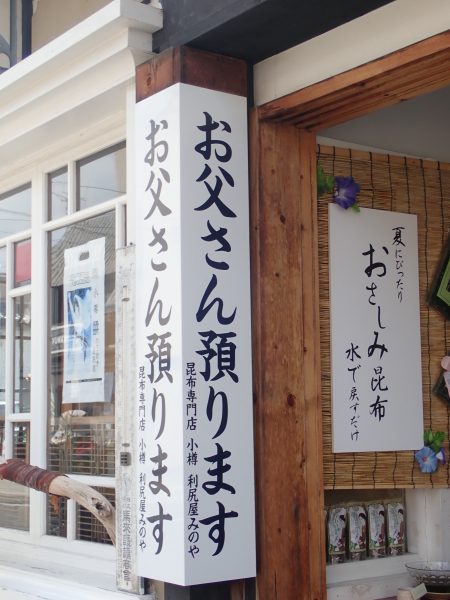 お父さん預ります
昆布専門店 小樽 利尻屋みのや
お父さん預ります
昆布専門店 小樽 利尻屋みのや
夏にぴったり
おさしみ昆布
水で戻すだけ